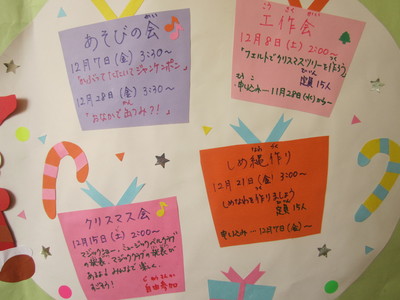 あそびの会
12月7日(金) 3:30～
12月28日(金) 3:30～
こうさくかい
工作会
12月8日(土) 2:00～
「フェルトでクリスマスツリーを作ろう」
ていいん
定員 15人
申しこみ―11月28日(水)から～
なわ づく
しめ縄作り
12月21日(金) 3:00～
しめなわを作りましょう
ていいん
定員 15人
申しこみ―12月7日(金)～
クリスマス会
12月15日(土) 2:00～
マジックショー、ミュージックベルクラブ
の発表、マジッククラブの発表が
あるよ!みんなで楽しく
すごそう!
自由参加